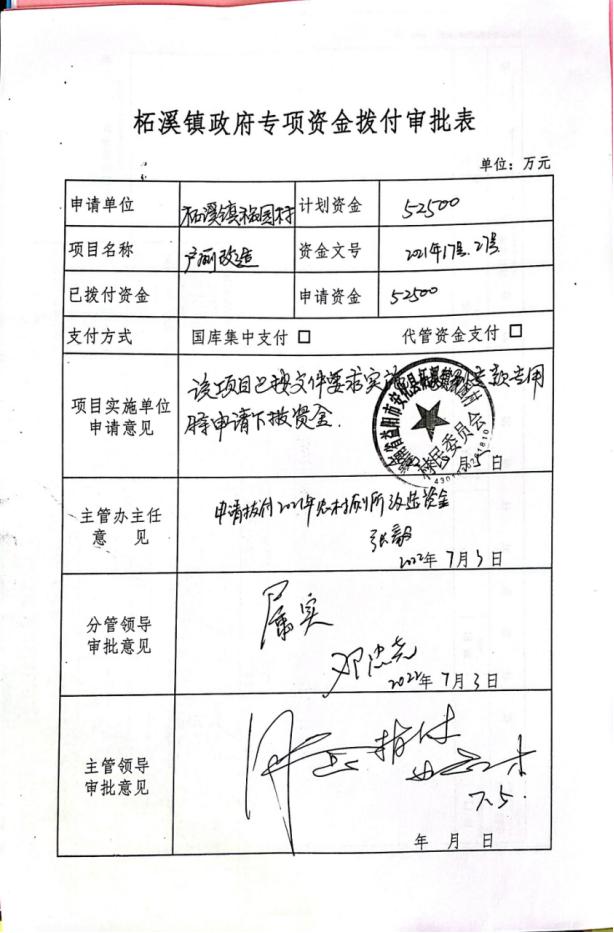 柘溪镇政府专项资金拨付审批表
单位：万元
申请单位 柘溪镇 计划资金 52500
项目名称 户厕改造 资金文号 2021年17号.27号
已拨付资金 申请资金 52500
支付方式 国库集中支付 □ 代管资金支付 □
项目实施单位
申请意见
该项目已按文件要求实施 专款专用
特申请下拨资金.
村民委员会
月5日
主管办主任
意 见
申请拨付2021年农村厕所改造资金
张毅
2022年7月3日
分管领导
审批意见
属实
邓忠尧
2022年7月3日
主管领导
审批意见
7.5.
年 月 日